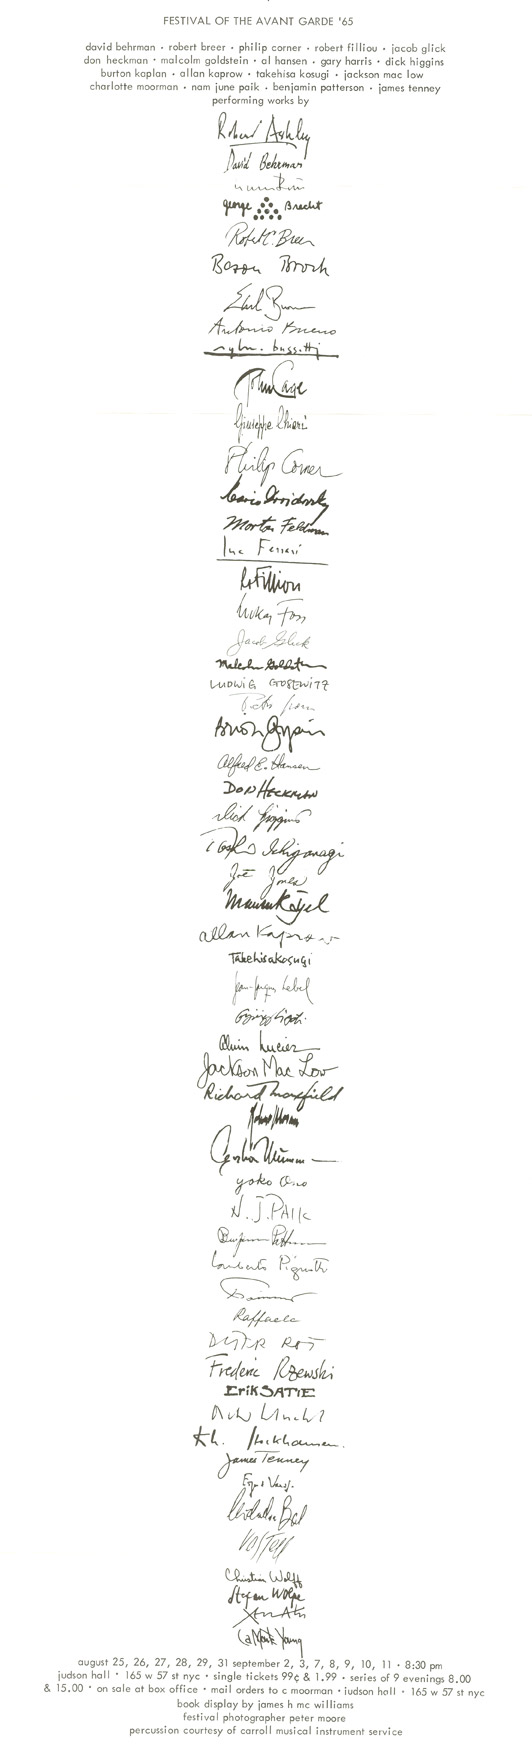 FESTIVAL OF THE AVANT GARDE '65
david behrman • robert breer • philip corner • robert filliou • jacob glick
don heckman • malcolm goldstein • al hansen • gary harris • dick higgins
burton kaplan • allan kaprow • takehisa kosugi • jackson mac low
charlotte moorman • nam june paik • benjamin patterson • james tenney
performing works by
Robert Ashley
David Behrman
george Brecht
Robert C. Breer
Earl Brown
Antonio Bueno
sylv. bussotti
John Cage
Giuseppe Chiari
Philip Corner
Morton Feldman
Luc Ferrari
R. Filliou
Lukas Foss
Jacob Glick
Malcolm Goldstein
LUDWIG GOSEWITZ
Brion Gysin
Alfred E. Hansen
DON HECKMAN
Dick Higgins
Toshi Ichiyanagi
Joe Jones
Mauricio Kagel
allan Kaprow
Takehisa Kosugi
Jean-Jacques Lebel
György Ligeti
Alvin Lucier
Jackson Mac Low
Richard Maxfield
yoko Ono
N. J. PAIK
Benjamin Patterson
Lamberto Pignotti
Raffaele
DITER ROT
Frederic Rzewski
ErIK SATIE
K.h. Stockhausen.
James Tenney
VOSTELL
Christian Wolff
Stefan Wolpe
La Monte Young
august 25, 26, 27, 28, 29, 31 september 2, 3, 7, 8, 9, 10, 11 • 8:30 pm
judson hall • 165 w 57 st nyc • single tickets 99¢ & 1.99 • series of 9 evenings 8.00
& 15.00 • on sale at box office • mail orders to c moorman • judson hall • 165 w 57 st nyc
book display by james h mc williams
festival photographer peter moore
percussion courtesy of carroll musical instrument service